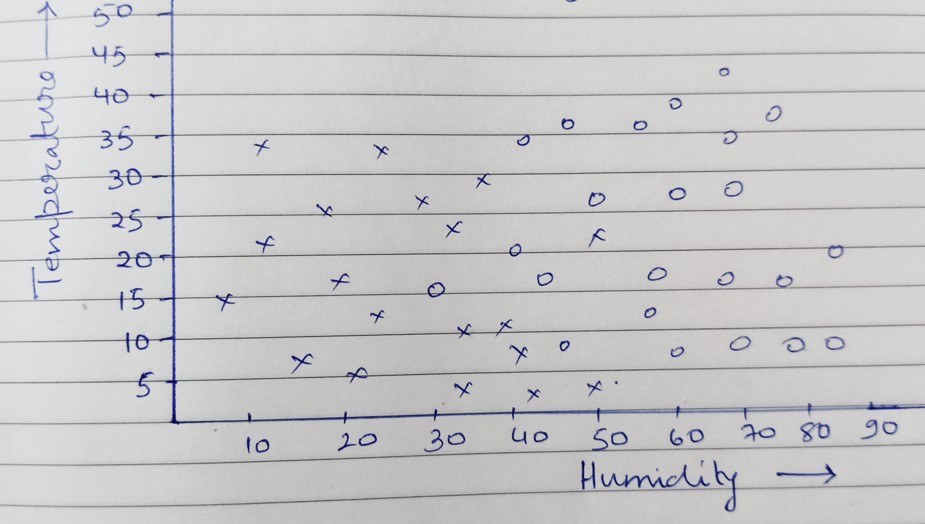 50
45
40
35
30
25
20
15
10
5
Temperature
10 20 30 40 50 60 70 80 90
Humidity